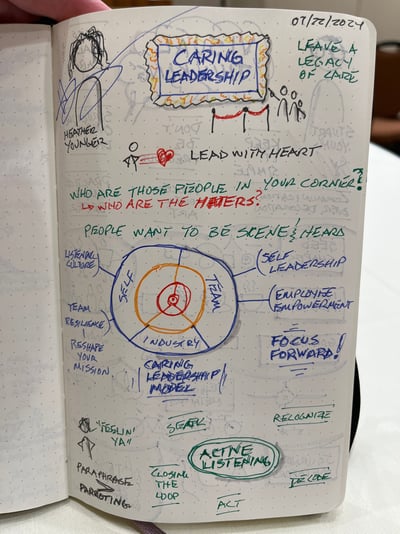 07/22/2024
CARING
LEADERSHIP
LEAVE A
LEGACY
OF CARE
HEATHER
YOUNGER
LEAD WITH HEART
WHO ARE THOSE PEOPLE IN YOUR CORNER?
WHO ARE THE HATERS?
PEOPLE WANT TO BE SCENE & HEARD
LISTENING
CULTURE
TEAM
RESILIENCE
RESHAPE
YOUR
MISSION
SELF
TEAM
INDUSTRY
SELF
LEADERSHIP
EMPLOYEE
EMPOWERMENT
FOCUS
FORWARD!
CARING
LEADERSHIP
MODEL
"FEELIN'
YA"
RECOGNIZE
ACTIVE
LISTENING
PARAPHRASE
>
PARROTING
CLOSING
THE
LOOP
ACT
DECODE